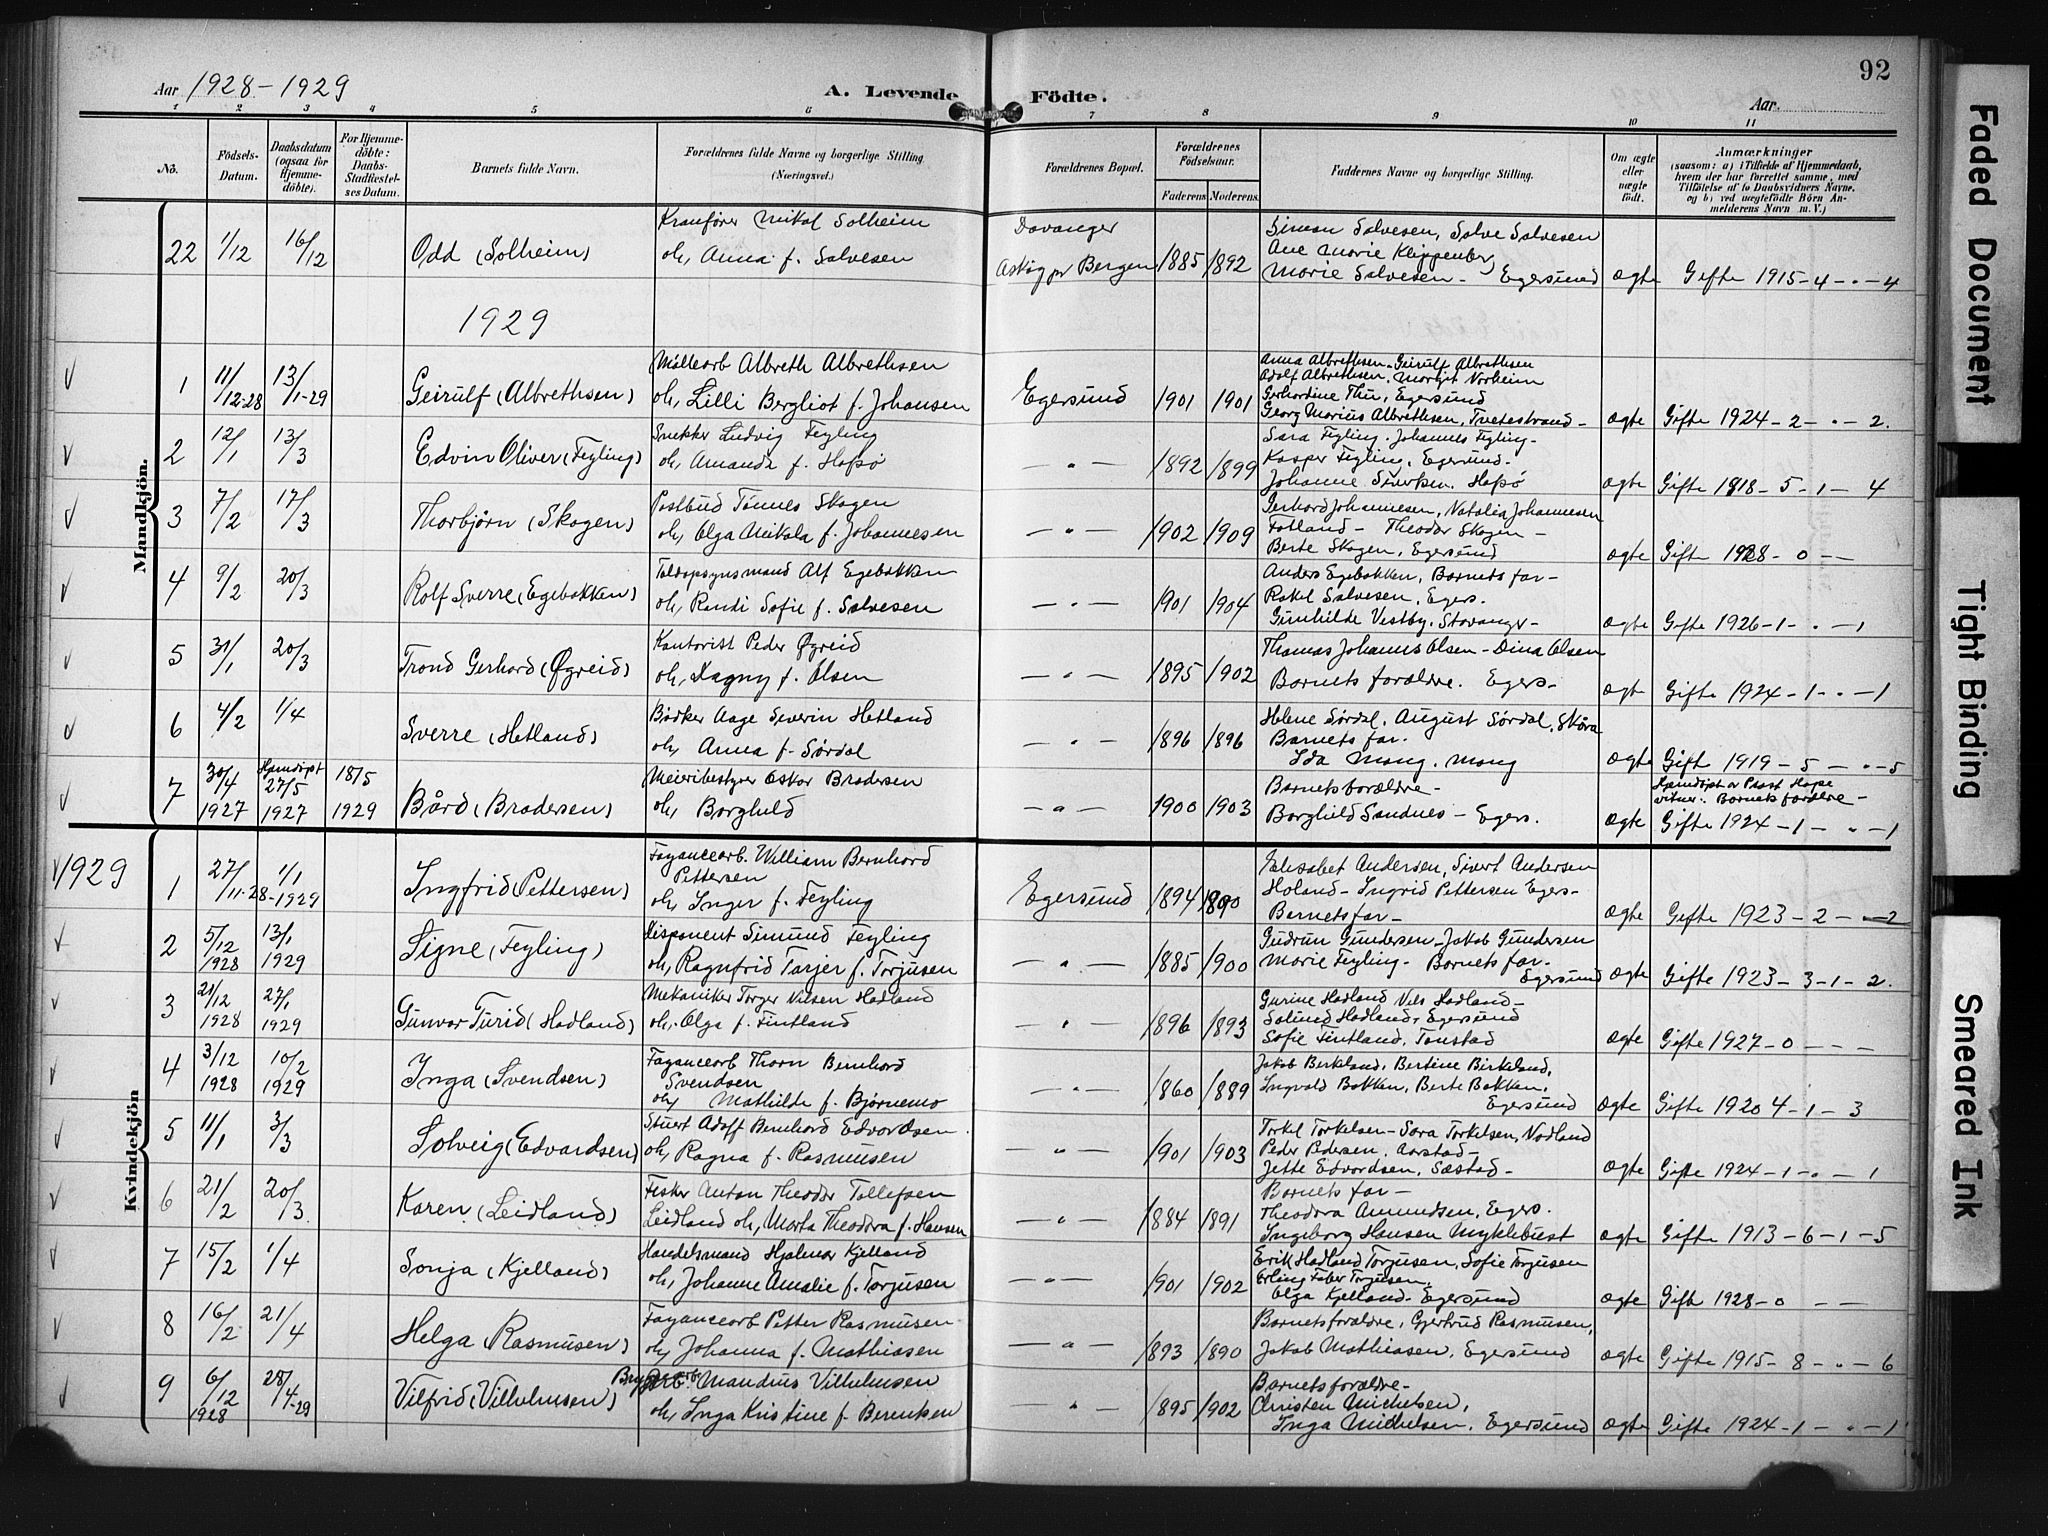 92
Aar 1928-1929
A. Levende Födte.
Aar.
1 2 3 4 5 6 7 8 9 10 11
No.
Födsels-Datum.
Daabsdatum (ogsaa for Hjemme-döbte).
For Hjemme-döbte: Daabs-Stadfæstel-ses Datum.
Barnets fulde Navn.
Forældrenes fulde Navne og borgerlige Stilling (Næringsvei.)
Forældrenes Bopæl.
Forældrenes Födselsaar.
Faderens Moderens
Faddernes Navne og borgerlige Stilling.
Om ægte eller uægte födt.
Anmærkninger
(saasom: a) i Tilfælde af Hjemmedaab, hvem der har forrettet samme, med Tilföielse af to Daabsvidners Navne. og b) ved uægtefödte Börn Anmelderens Navn m. V.)
Mandkjön.
22 1/12 16/12 Odd (Solheim)
Kranfører Mikal Solheim
oh, Anna f. Salvesen
Davanger
Askøy pr Bergen 1885 1892
Simon Salvesen, Salve Salvesen
Ane Marie Klippenberg
Marie Salvesen - Egersund
ægte Gifte 1915-4-"-4
1929
1 11/12-28 13/1-29 Geirulf (Albrethsen)
Malerarb Albreth Albrethsen
oh, Lilli Bergliot f. Johansen
Egersund 1901 1901
Anna Albrethsen - Geirulf Albrethsen
Adolf Albrethsen, Margit Norheim
Gerhardine Thu, Egersund
Georg Marius Albrethsen, Tvedestrand -
ægte Gifte 1924-2-"-2.
2 12/1 13/3 Edvin Oliver (Feyling)
Snekker Ludvig Feyling
oh, Amanda f. Hafsø
- " - 1892 1899
Sara Feyling. Johannes Feyling -
Kasper Feyling, Egersund.
Johanne Hafsø
ægte Gifte 1918-5-1-4
3 7/2 17/3 Thorbjørn (Skogen)
Postbud Tønnes Skogen
oh, Olga Mikala f. Johannesen
- " - 1902 1909
Gerhard Johannesen, Natalia Johannesen
Fotland - Theodor Skogen -
Berte Skogen, Egersund
ægte Gifte 1928-0- -
4 9/2 20/3 Rolf Sverre (Egebakken)
Toldopsynsmand Alf Egebakken
oh, Randi Sofie f. Salvesen
- " - 1901 1904
Anders Egebakken, Barnets far -
Rakel Salvesen, Egers.
Gunhilde Vestby, Stavanger -
ægte Gifte 1926-1-"-1
5 31/1 20/3 Trond Gerhard (Øgreid)
Kontorist Peder Øgreid
oh, Dagny f. Olsen
- " - 1895 1902
Thomas Johannes Olsen - Dina Olsen
Barnets forældre. Egers -
ægt Gifte 1924-1-"-1
6 4/2 1/4 Sverre (Hetland)
Bødker Aage Severin Hetland
oh, Anna f. Sørdal
- " - 1896 1896
Helene Sørdal. August Sørdal, Skåra
Barnets far.
Ida Mong. Mong
ægte Gifte 1919-5-"-5
7 30/4 1927 Hjemdøpt 27/5 1927 18/5 1929 Bård (Brodersen)
Meieribestyrer Oskar Brodersen
oh, Borghild
- " - 1900 1903
Barnets forældre -
Borghild Sandnes - Egers.
ægte
Hjemdøpt av Prost Hope
vitner: Barnets forældre -
Gifte 1924-1-"-1
Kvindekjön
1929
1 27/11-28 1/1-1929 Ingfrid (Pettersen)
Fayancearb. William Bernhard
Pettersen
oh, Inger f. Feyling
Egersund 1894 1890
Elisabet Andersen, Sivert Andersen
Holand - Ingrid Pettersen Egers -
Barnets far -
ægte Gifte 1923-2-"-2
2 5/12 1928 13/1 1929 Signe (Feyling)
Disponent Simund Feyling
oh, Ragnfrid Tarjer f. Torjusen
- " - 1885 1900
Gudrun Gundersen - Jakob Gundersen
Marie Feyling - Barnets far -
Egersund
ægte Gifte 1923-3-1-2.
3 21/12 1928 27/1 1929 Gunvor Turid (Hadland)
Mekaniker Torger Nilsen Hadland
oh, Olga f. Fintland
- " - 1896 1893
Gurine Hadland Nils Hadland -
Salmund Hadland, Egersund
Sofie Fintland, Tonstad
ægte Gifte 1927-0- - -
4 3/12 1928 10/2 1929 Inga (Svendsen)
Fayancearb Thorn Bernhard
Svendsen
oh, Mathilde f. Bjørnemo
- " - 1860 1889
Jakob Birkeland, Bertine Birkeland,
Ingvald Bakken, Berte Bakken.
Egersund
ægte Gifte 1920 4-1-3
5 11/1 3/3 Solveig (Edvardsen)
Stuert Adolf Bernhard Edvardsen
oh, Ragna f. Rasmusen
- " - 1901 1903
Torkel Torkelsen - Sara Torkelsen, Nodland
Peder Pedersen, Aarstad -
Jette Edvardsen, Sæstad -
ægte Gifte 1924-1-"-1
6 21/2 20/3 Karen (Leidland)
Fisker Anton Theodor Tollefsen
Leidland oh, Marta Theodora f. Hansen
- " - 1884 1891
Barnets far -
Theodora Amundsen, Egers.
Ingeborg Hansen Myklebust
ægte Gifte 1913-6-1-5
7 15/2 1/4 Sonja (Kjelland)
Handelsmand Hjalmar Kjelland
oh, Johanne Amalie f. Torjusen
- " - 1901 1902
Erik Hadland Torjusen, Sofie Torjusen
Erling Faber Torjusen,
Olga Kjelland - Egersund
ægte Gifte 1928-0 - -
8 16/2 21/4 Helga (Rasmusen)
Fayancearb Petter Rasmusen
oh, Johanna f. Mathiasen
- " - 1893 1890
Barnets forældre, Gjertrud Rasmusen,
Jakob Mathiasen, Egersund
ægte Gifte 1915-8-"-6
9 6/12 1928 28/4-29 Vilfrid (Vilhelmsen)
Mandius Vilhelmsen
oh, Inga Kristine f. Berentsen
- " - 1895 1902
Barnets forældre -
Christen Michelsen,
Inga Michelsen. Egersund
ægte Gifte 1924-1-"-1
Faded Document
Tight Binding
Smeared Ink